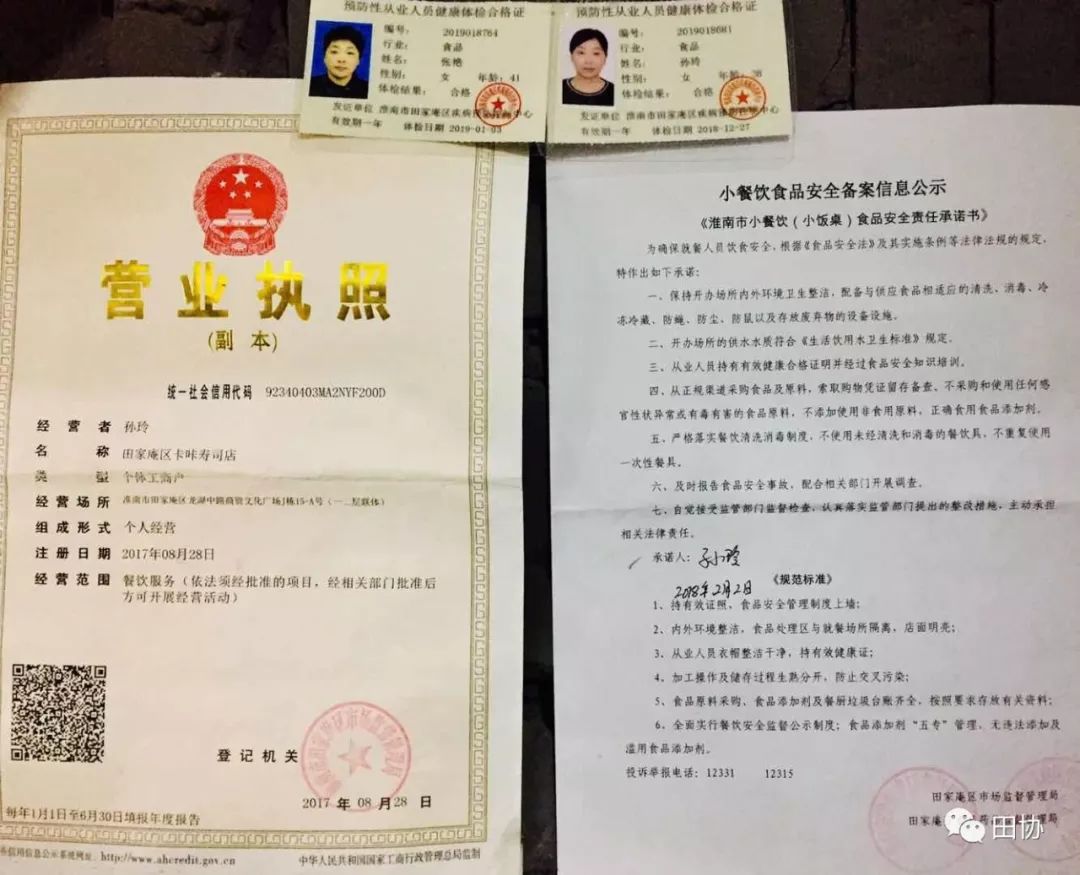 预防性从业人员健康体检合格证
编号: 2019018764
行业: 食品
姓名: 张艳
性别: 女 年龄: 41
体检结果: 合格
发证单位 淮南市田家庵区疾病预防控制中心
有效期一年 体检日期 2019-01-03
预防性从业人员健康体检合格证
编号: 2019018681
行业: 食品
姓名: 孙玲
性别: 女 年龄:
体检结果: 合格
发证单位 淮南市田家庵区疾病预防控制中心
有效期一年 体检日期 2018-12-27
营业执照
(副 本)
统一社会信用代码 92340403MA2NYF200D
经营者 孙玲
名称 田家庵区卡咔寿司店
类型 个体工商户
经营场所 淮南市田家庵区龙湖中路商贸文化广场J栋15-A号(一二层联体)
组成形式 个人经营
注册日期 2017年08月28日
经营范围 餐饮服务(依法须经批准的项目,经相关部门批准后
方可开展经营活动)
登记机关
2017 年 08 月 28 日
每年1月1日至6月30日填报年度报告
信用信息公示系统网址: http://www.ahcredit.gov.cn
中华人民共和国国家工商行政管理总局监制
小餐饮食品安全备案信息公示
《淮南市小餐饮(小饭桌)食品安全责任承诺书》
为确保就餐人员饮食安全,根据《食品安全法》及其实施条例等法律法规的规定,
特作出如下承诺:
一、保持开办场所内外环境卫生整洁,配备与供应食品相适应的清洗、消毒、冷
冻冷藏、防蝇、防尘、防鼠以及存放废弃物的设备设施。
二、开办场所的供水水质符合《生活饮用水卫生标准》规定。
三、从业人员持有有效健康合格证明并经过食品安全知识培训。
四、从正规渠道采购食品及原料,索取购物凭证留存备查、不采购和使用任何感
官性状异常或有毒有害的食品原料,不添加使用非食用原料,正确食用食品添加剂。
五、严格落实餐饮清洗消毒制度,不使用未经清洗和消毒的餐饮具,不重复使用
一次性餐具。
六、及时报告食品安全事故,配合相关部门开展调查。
七、自觉接受监管部门监督检查,认真落实监管部门提出的整改措施,主动承担
相关法律责任。
承诺人: 孙玲
2018年2月2日 《规范标准》
1、持有效证照、食品安全管理制度上墙;
2、内外环境整洁,食品处理区与就餐场所隔离,店面明亮;
3、从业人员衣帽整洁干净,持有效健康证;
4、加工操作及储存过程生熟分开,防止交叉污染;
5、食品原料采购、食品添加剂及餐厨垃圾台账齐全,按照要求存放有关资料;
6、全面实行餐饮安全监督公示制度;食品添加剂“五专”管理,无违法添加及
滥用食品添加剂。
投诉举报电话: 12331 12315
田家庵区市场监督管理局
田协